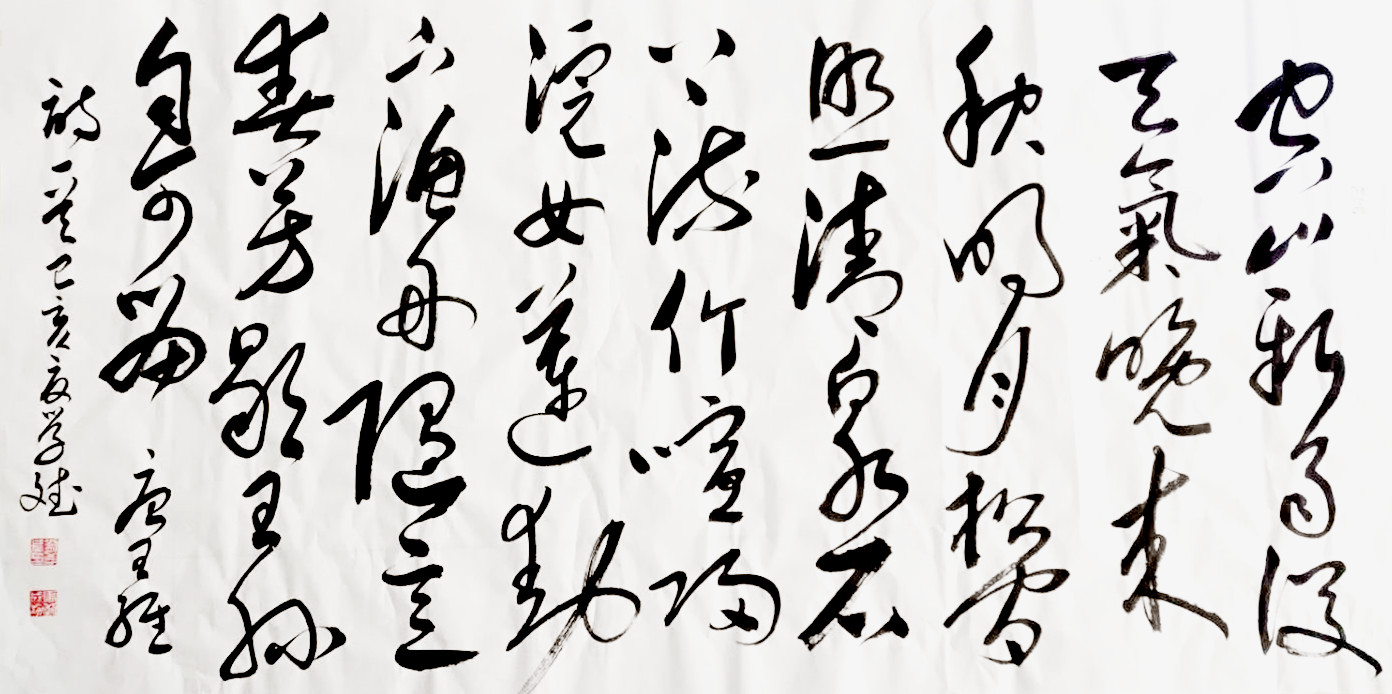 空山新雨後
天氣晚來
秋明月松間
照清泉石
上流竹喧歸
浣女蓮動
下漁舟隨意
春芳歇王孫
自可留 唐王維
詩一首己亥夏学斌